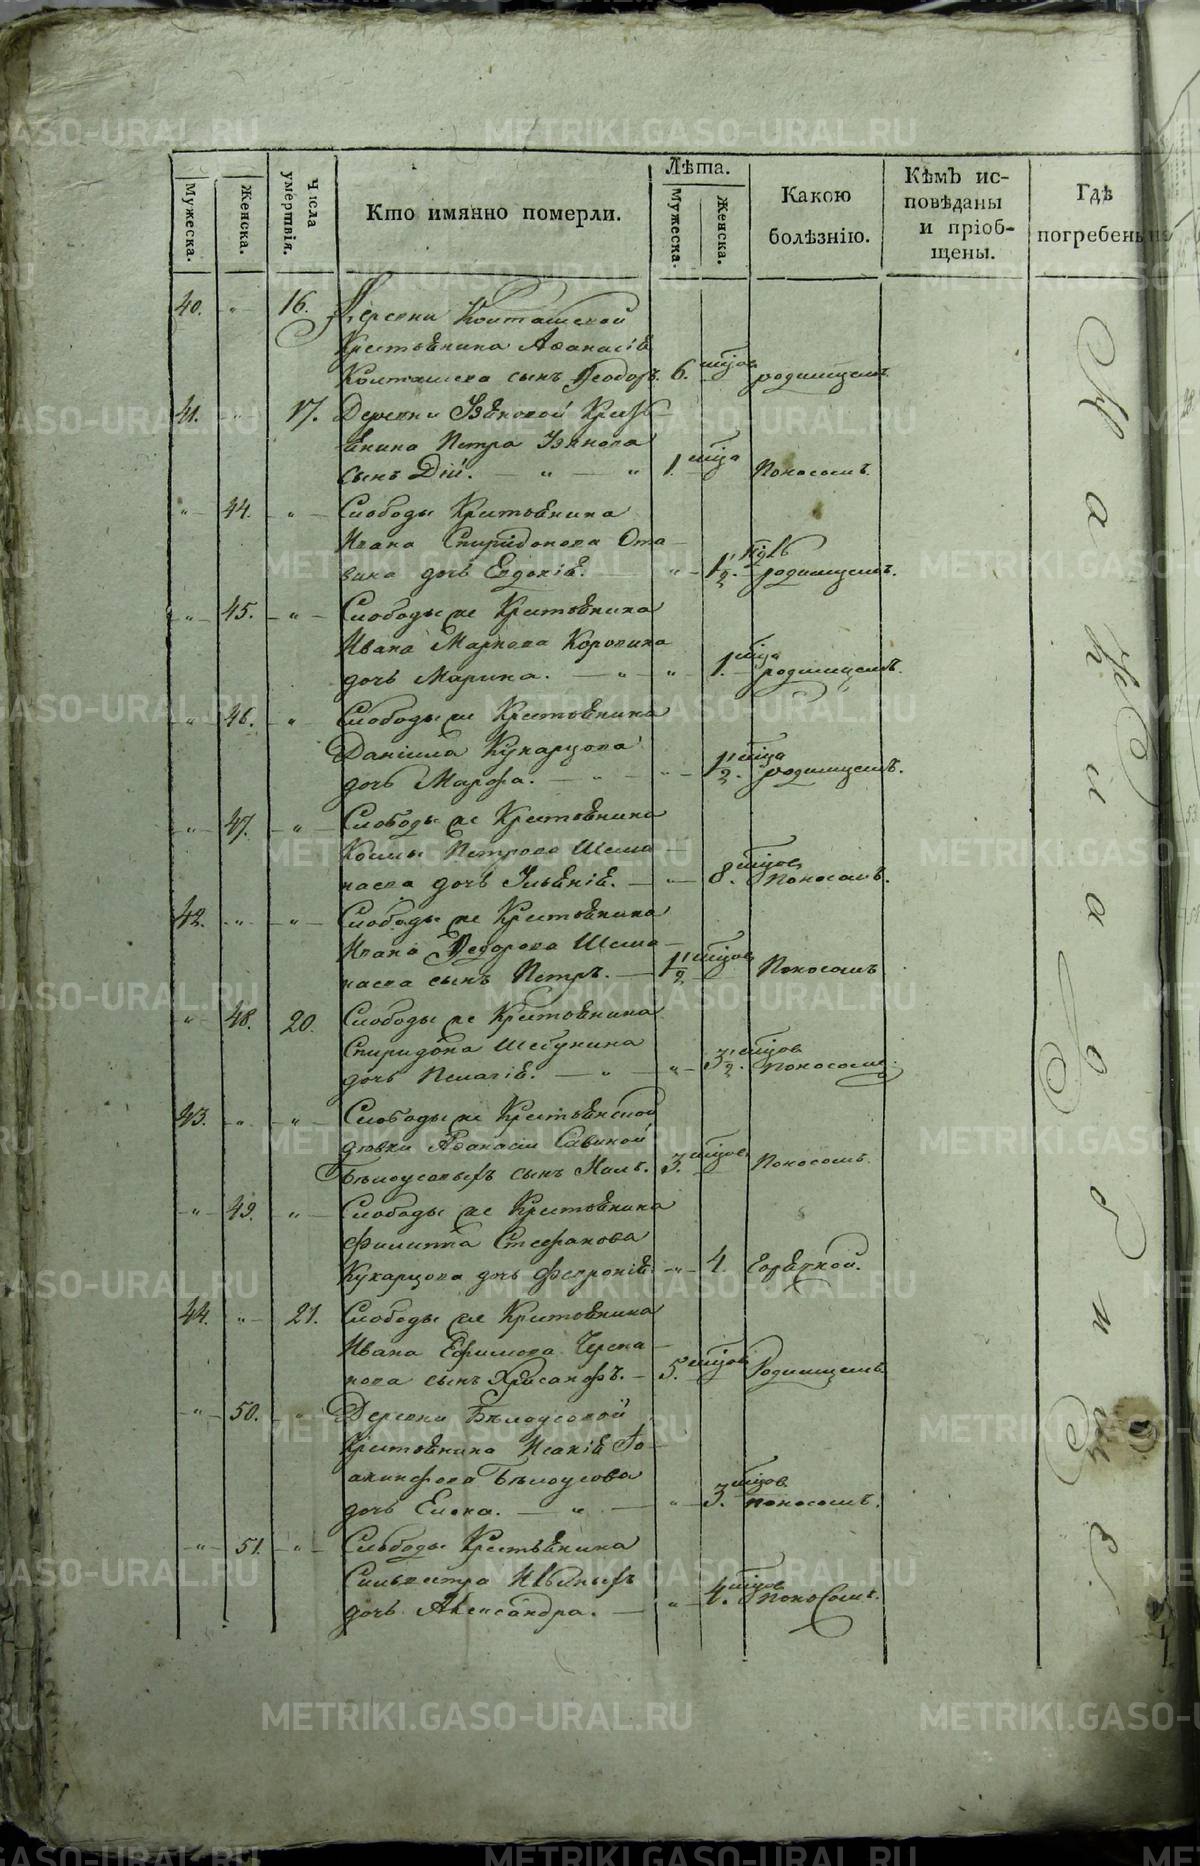 Мужеска.
Женска.
Числа умертвія.
Кто имянно померли.
Лѣта.
Мужеска.
Женска.
Какою болѣзнію.
Кѣмъ исповѣданы и пріобщены.
Гдѣ погребены
40. " 16. Деревни Конташской
Крестьянина Афанасія
сынъ Ѳеодоръ. 6. мцов родимцемъ
41. " 17. Деревни
Петра
сынъ Дій. — " — " 1. мца Поносомъ
" 44. " Слободы Крестьянина
Ивана Спиридонова
дочь Евдокія. — " — 1½ года родимцемъ.
" 45. " Слободы же Крестьянина
Ивана Маркова Коровина
дочь Марина. — " — " 1. мца родимцемъ.
" 46. " Слободы же Крестьянина
Даніила Кукарцова
дочь Марфа. — " — " 1½. мца родимцемъ.
" 47. " Слободы же Крестьянина
Козмы Петрова Шема-
наева дочь — " — 8. мцов Поносомъ.
42. " " Слободы же Крестьянина
Ивана Ѳедорова Шема-
наева сынъ Петръ. — 1½ мцов Поносомъ
" 48. 20. Слободы же Крестьянина
Спиридона
дочь Пелагія. — " — " 3½. мцов Поносомъ.
43. " " Слободы же Крестьянской
дѣвки Афанасіи Савиной
Бѣлоусовыхъ сынъ 3. мцов Поносомъ.
" 49. " Слободы же Крестьянина
Филиппа Стефанова
Кукарцова дочь Феѵронія. " 4. Горячкой.
44. " 21. Слободы же Крестьянина
Ивана Ефимова Черепа-
нова сынъ Хрисанфъ. — 5. мцов Родимцемъ
" 50. " Деревни Бѣлоусовой
Крестьянина Исакія Іо-
акинфова Бѣлоусова
дочь Елена. — " — " 3. мцов поносомъ.
" 51. " Слободы Крестьянина
Сильвестра
дочь Александра. — " 4. мцов поносомъ.
На кладбищѣ
METRIKI.GASO-URAL.RU